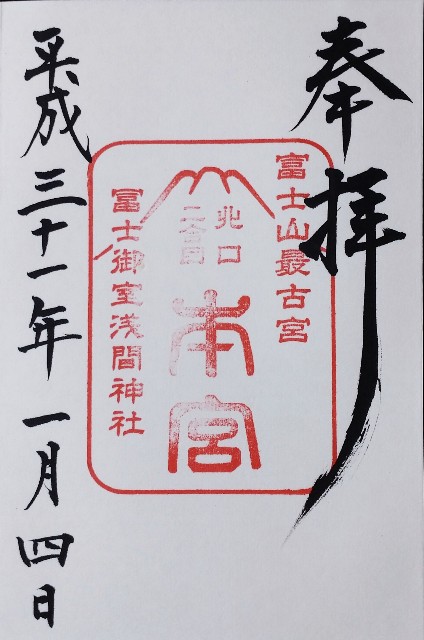 奉拝
富士山最古宮
北口
二合目
本宮
冨士御室浅間神社
平成三十一年一月四日